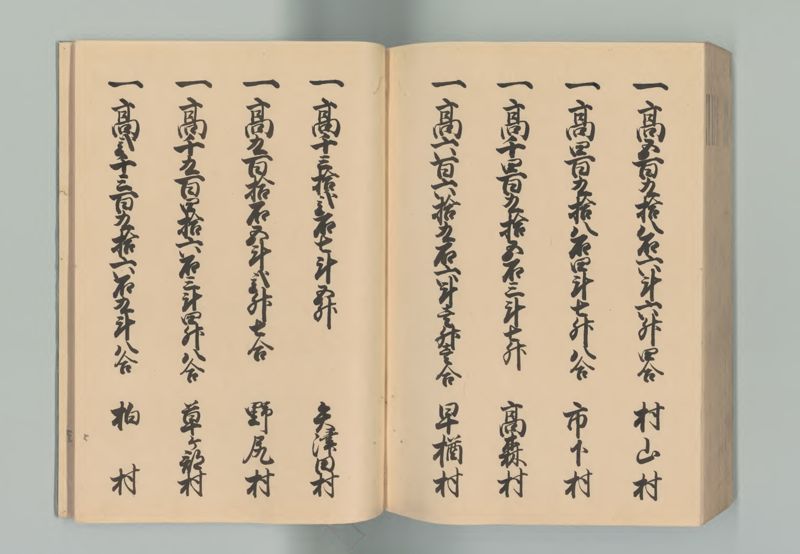 一高五百九拾八石六斗六升四合 村山村
一高四百九拾八石四斗七升八合 市下村
一高千四百九拾五石三斗七升 高森村
一高六百六拾九石六斗壱升壱合 早楢村
一高千三拾弐石七斗五升 矢津田村
一高九百拾石五斗弐升七合 野尻村
一高千五百四拾六石三斗四升八合 草ヶ部村
一高弐千三百九拾六石九斗八合 柏村